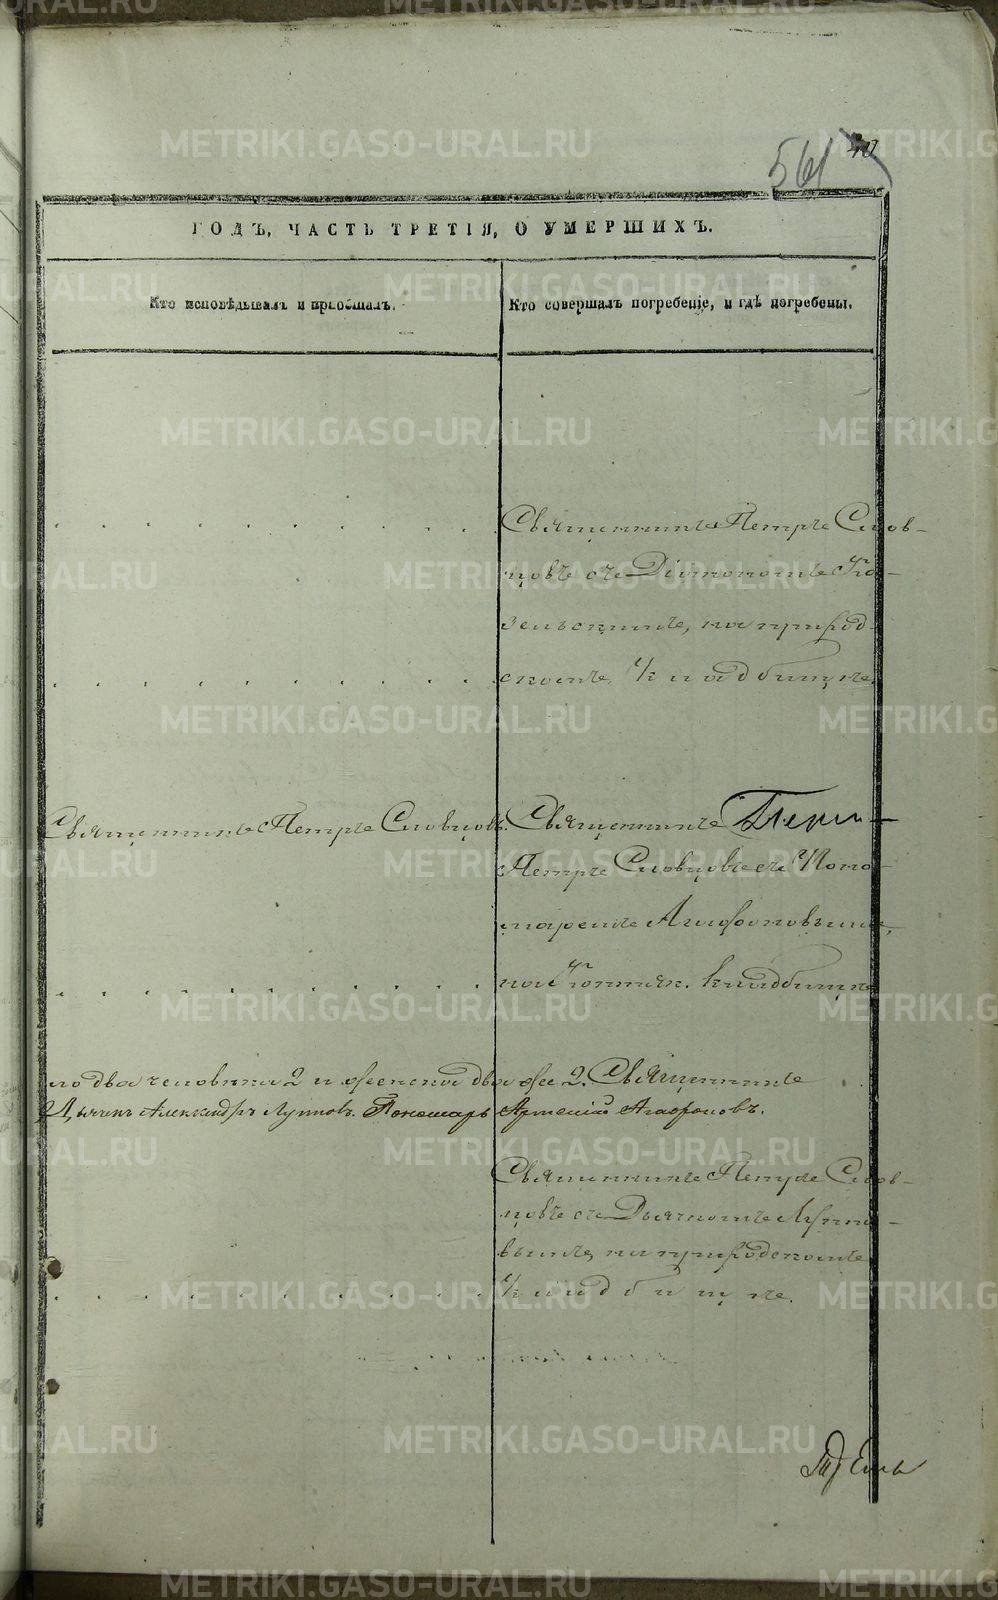 561 40
ГОДЪ, ЧАСТЬ ТРЕТІЯ, О УМЕРШИХЪ.
Кто исповѣдывалъ и пріобщалъ.
Кто совершалъ погребеніе, и гдѣ погребены.
Священникъ Петръ Слов-
цовъ съ Діакономъ Ко-
зельскимъ, на приход-
скомъ кладбищѣ.
Священникъ Петръ Словцовъ.
Священникъ
Петръ Словцовъ съ Поно-
маремъ Агафоновымъ,
на кладбищѣ
ло два человѣка 2 и женска два же 2. Священникъ
Дьячекъ Александръ Луппов. Пономарь Артемій Агафоновъ.
Священникъ Петръ Слов-
цовъ съ Дьячкомъ Луппо-
вымъ, на приходскомъ
кладбищѣ.
METRIKI.GASO-URAL.RU